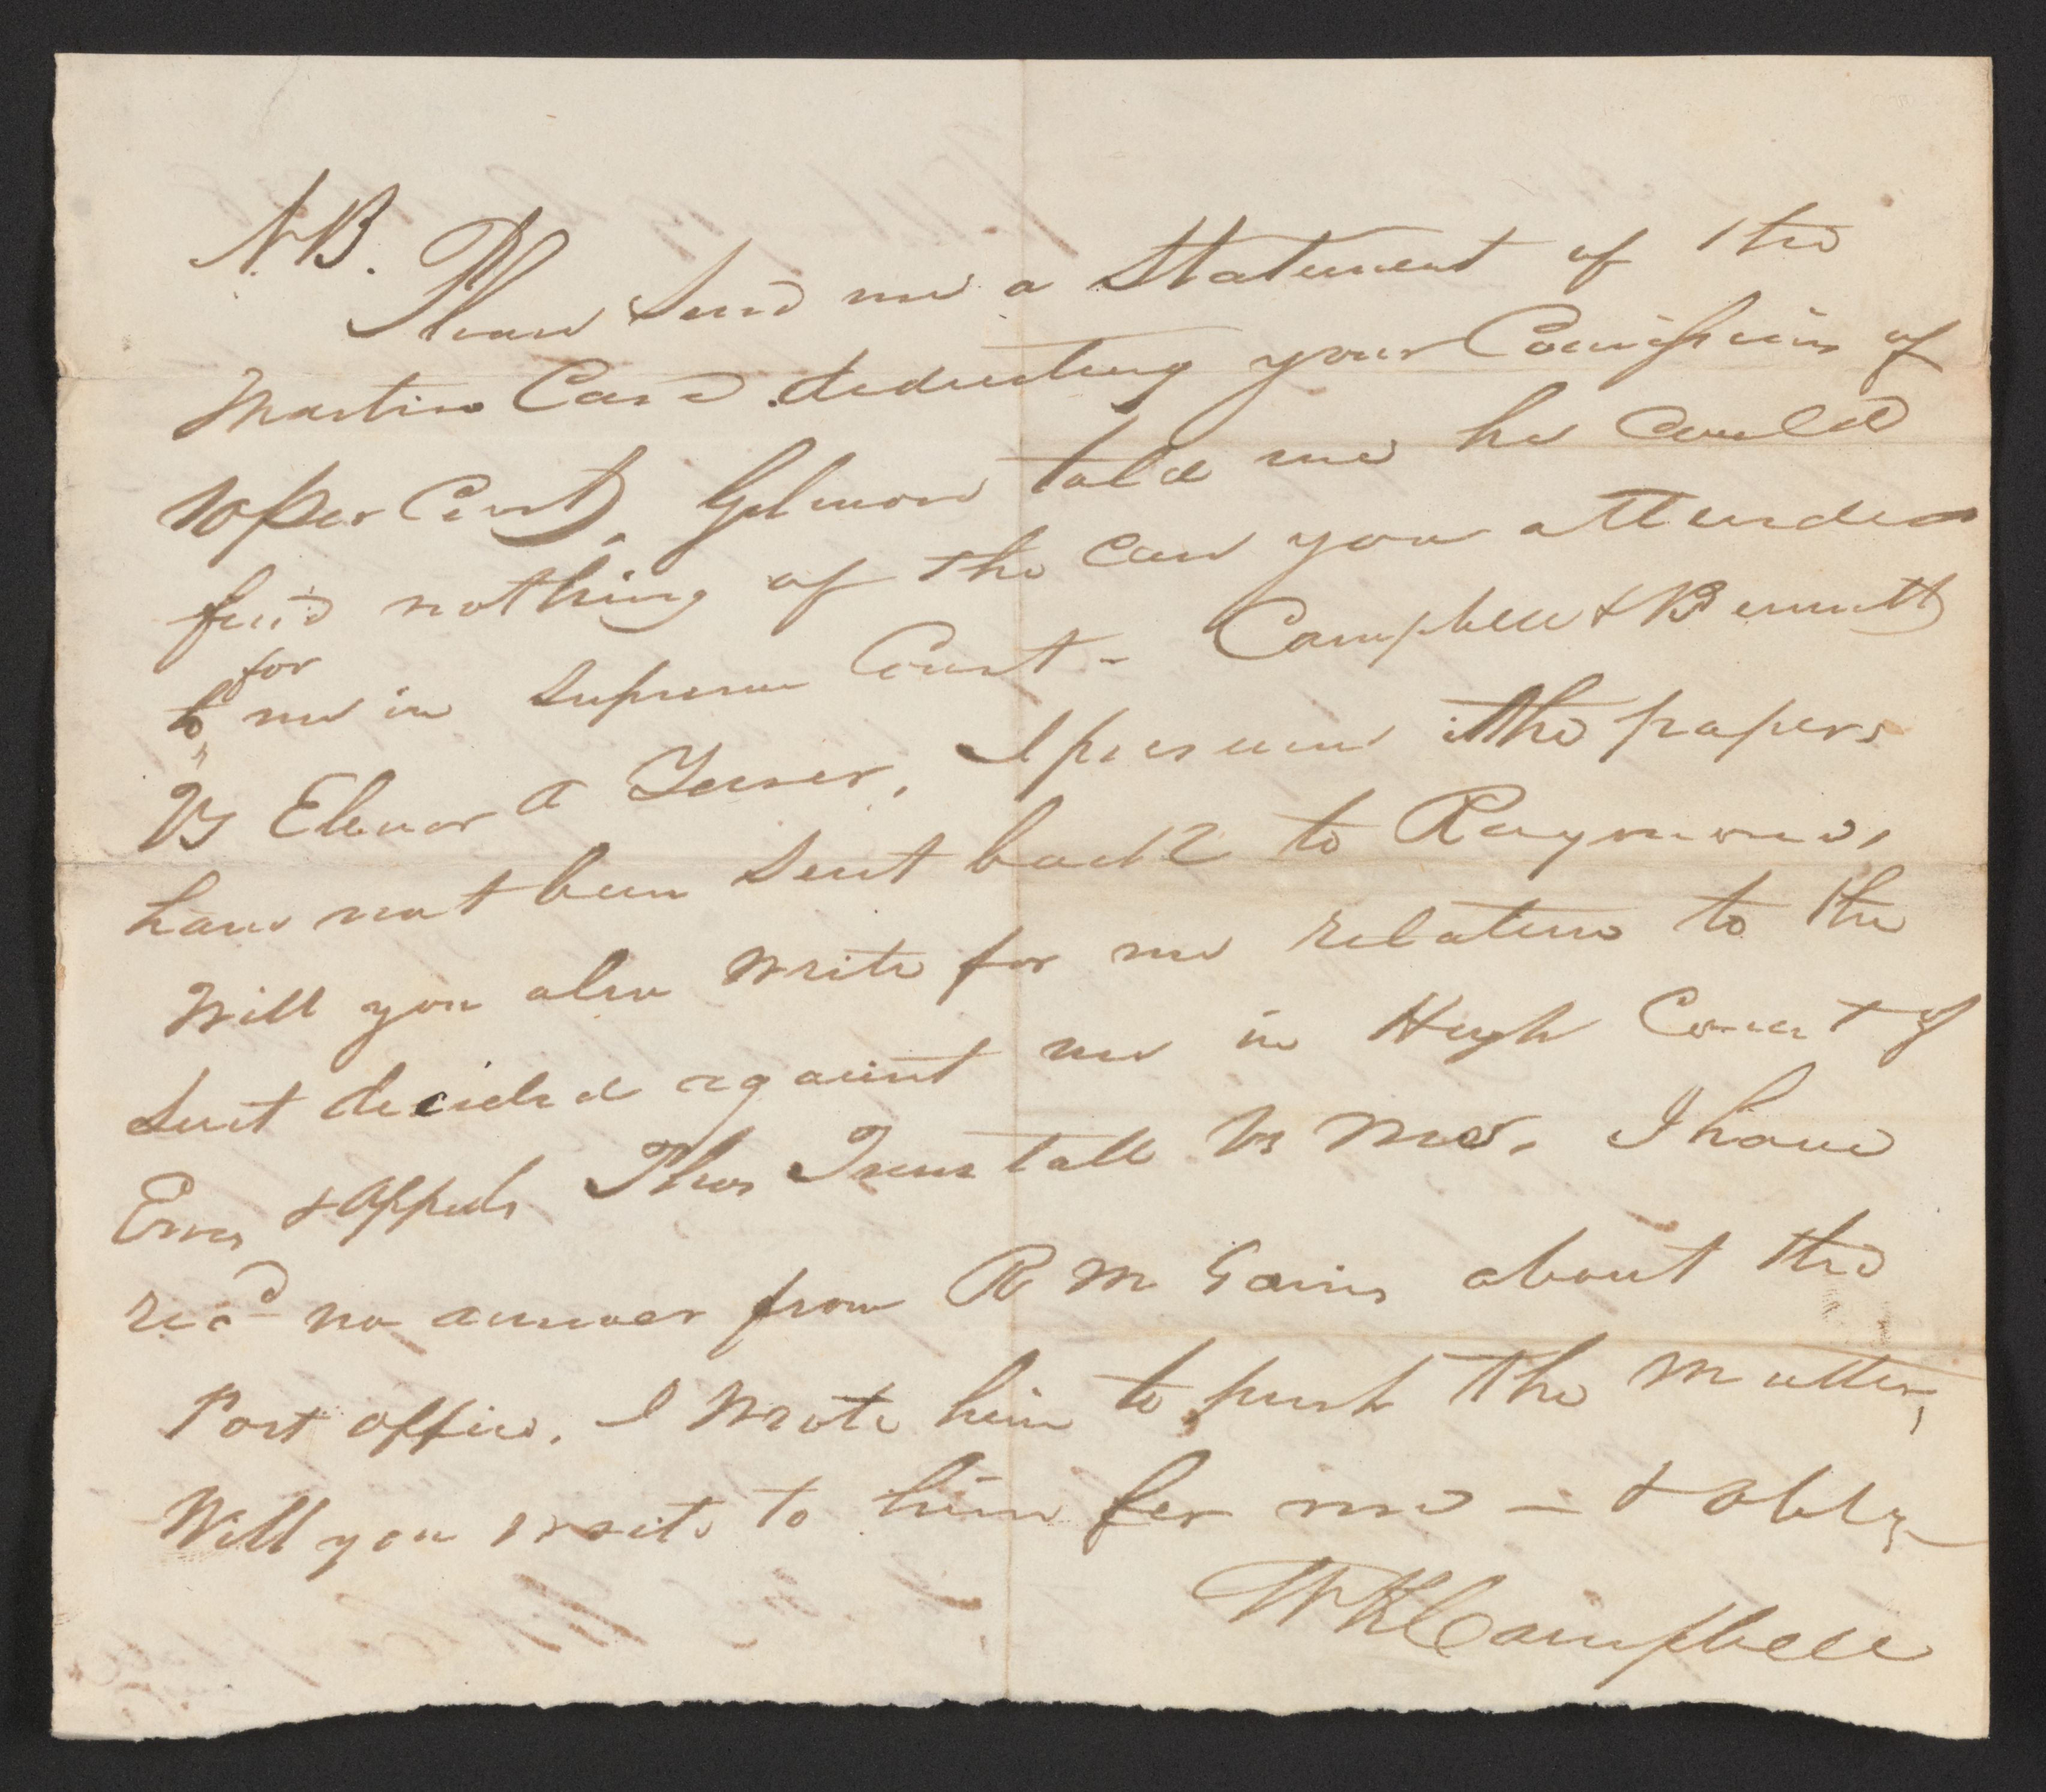 N.B.
Please Send me a Statement of the
Martin Case deducting your Comissions of
10 per Cent, Gilmore told me he could
find nothing of the case you attended
to for me in Supreme Court - Campbell & Bennett
Vs Elenor A I presume the papers
have not been sent back to Raymond,
Will you also write for me relative to the
Suit decided against me in High Court of
Errs & Appeals Thos Tunstall Vs me, I have
recd no answer from R M Gains about the
Post office, I wrote him to push the matter,
Will you write to him for me — & oblige
W R Campbell